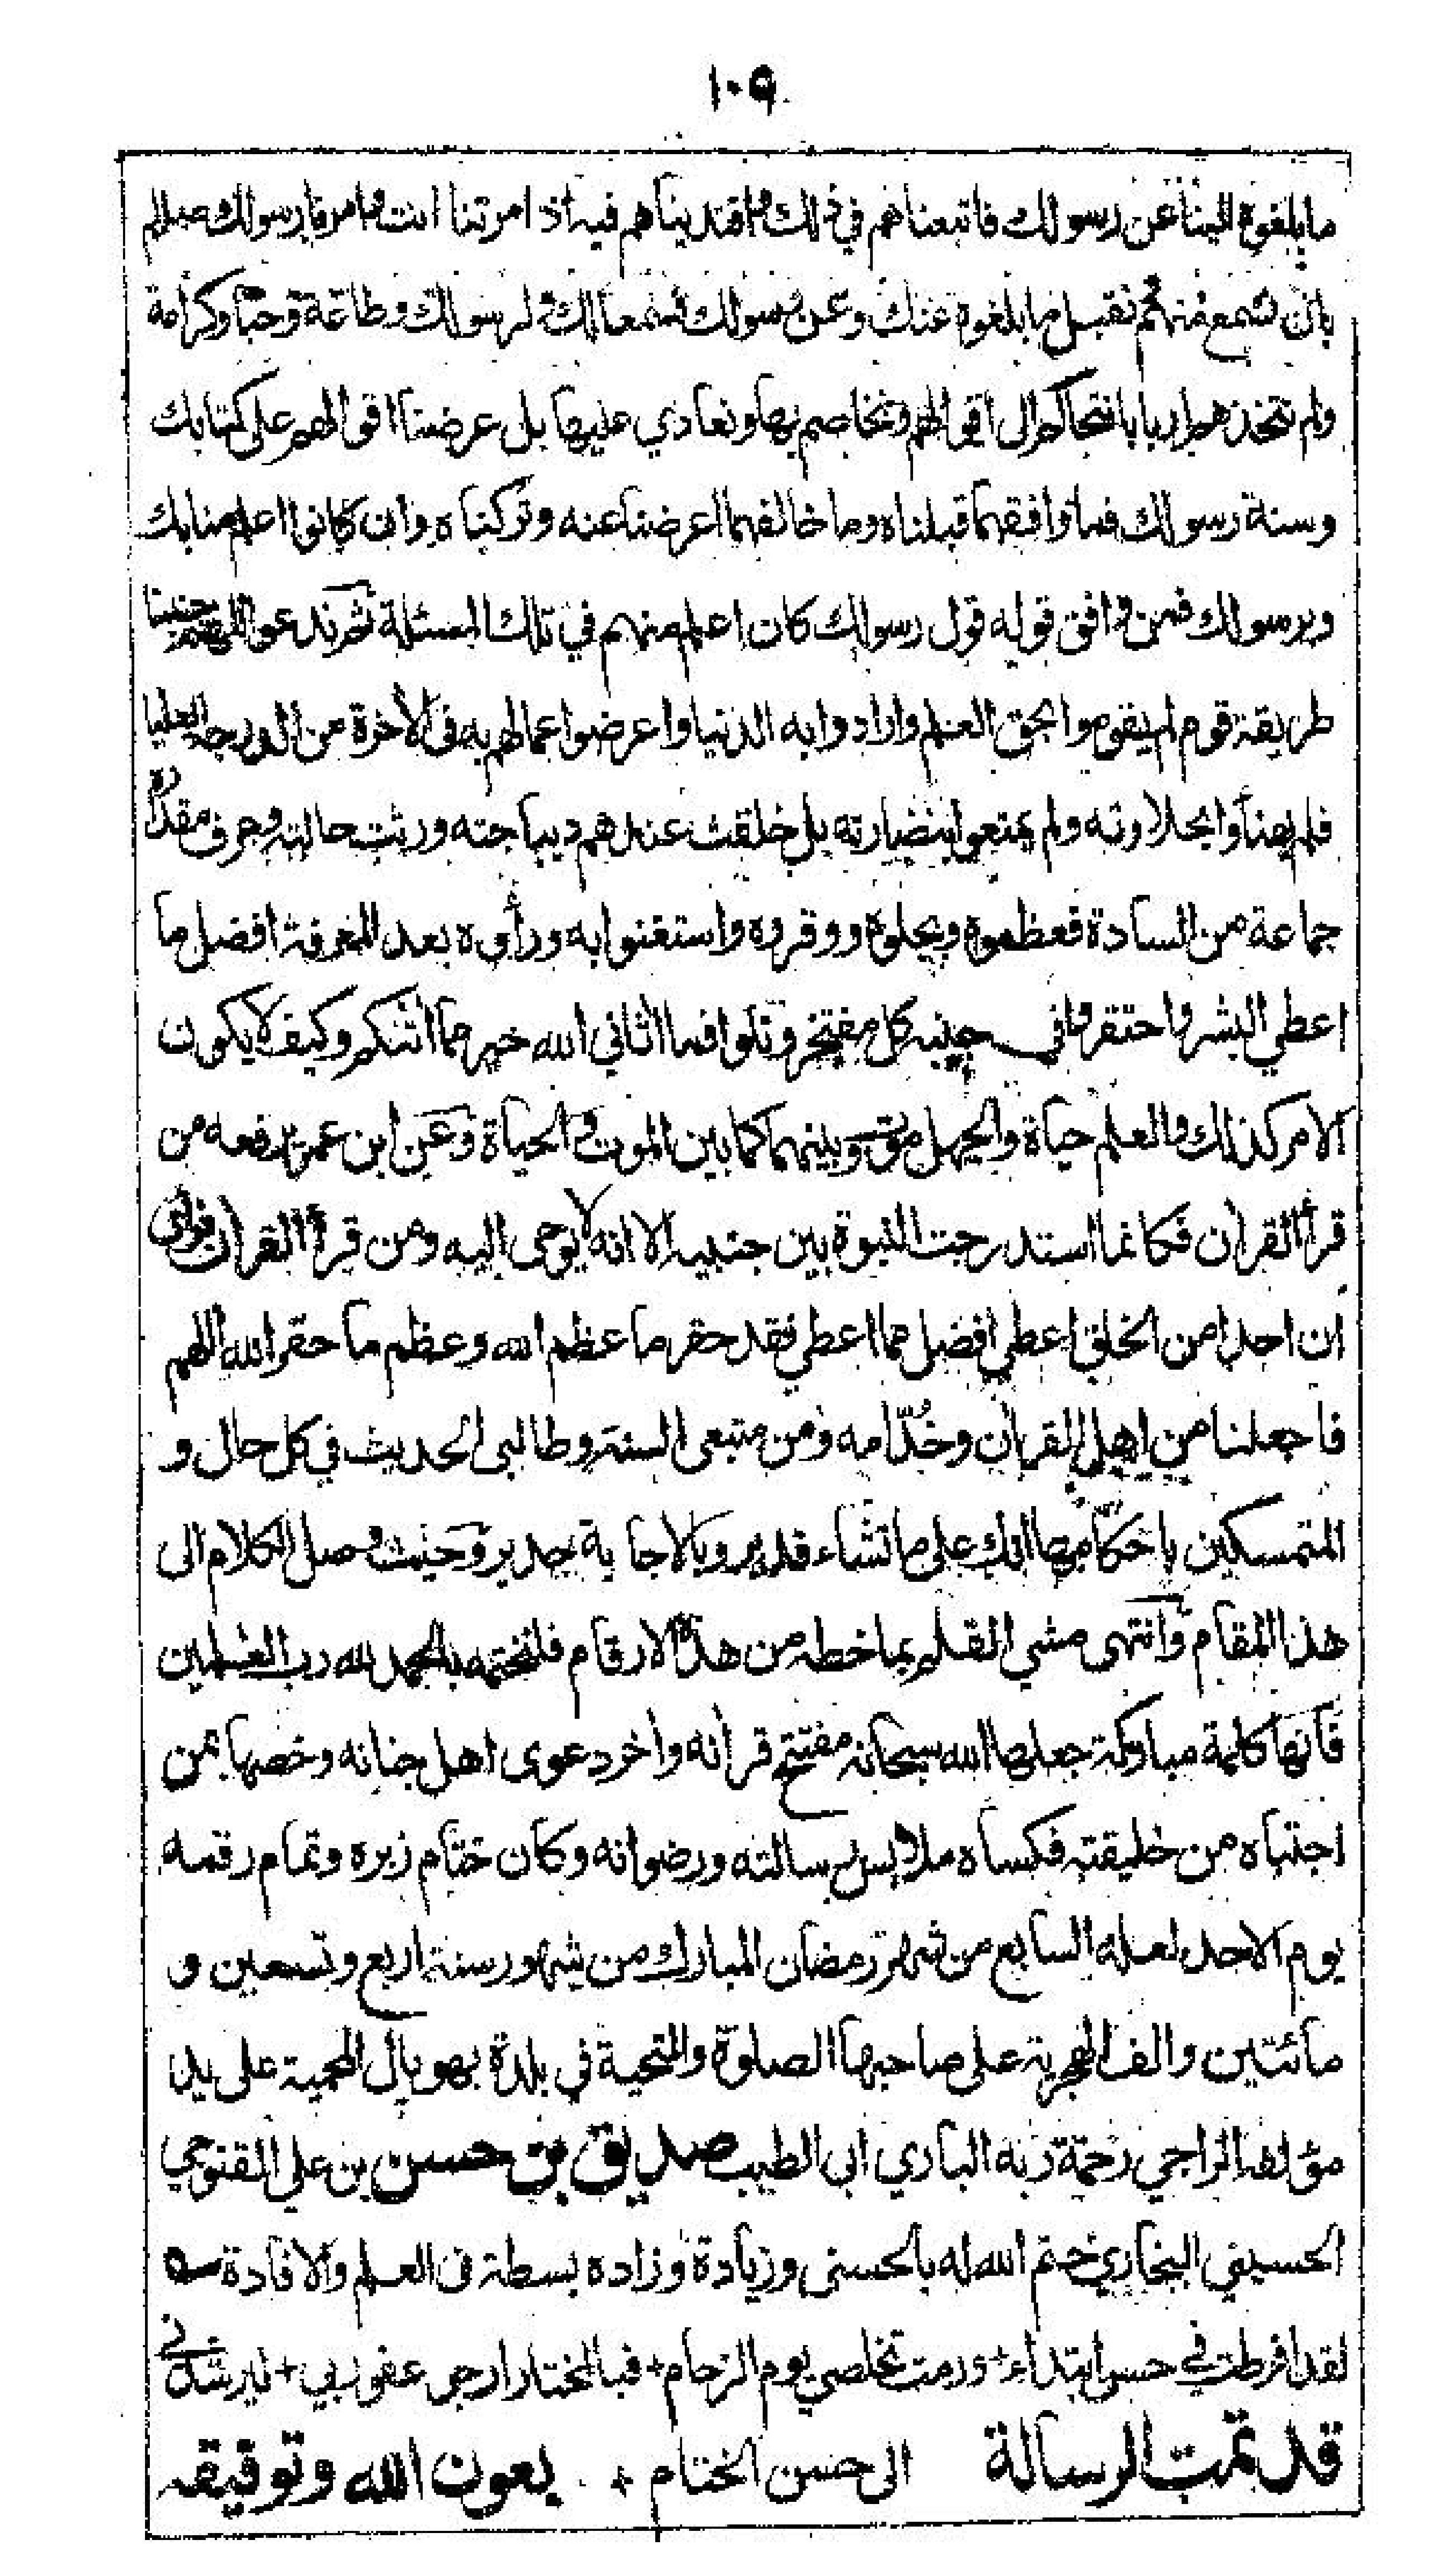 ١٠٩
ما بلغوه الينا عن رسولك فاتبعناهم في ذلك واقتديناهم فيه اذ امرتنا انت وامرنا رسولك صللم
بان نسمع منهم نقبل ما بلغوه عنك وعن رسولك فسمعا لك ولرسولك وطاعة وحبّا وكرامة
ولم نتخذهم اربابا نتحاكم الى اقوالهم ونخاصم بها ونعادي عليها بل عرضنا اقوالهم على كتابك
وسنة رسولك فما وافقهما قبلناه وما خالفهما اعرضنا عنه وتركناه وان كانوا اعلم منا بك
وبرسولك فمن وافق قوله قول رسولك كان اعلم منهم في تلك المسئلة ثم ندعو اللهم جنبنا
طريقة قوم لم يقوموا بحق العلم وارادوا به الدنيا واعرضوا عما لهم به في الأخرة من الدرجة العليا
فلم يهنأوا بحلاوته ولم يمتعوا بنضارته بل خلقت عندهم ديباجته ورثت حالته وعرف مقداره
جماعة من السادة فعظموه وبجلوه ووقروه واستغنوا به ورأوه بعد المعرفة افضل ما
اعطي البشر واحتقروا في جنبه كل مفتخر وتلوا فما اٰتاني الله خير مما اٰتٰكم وكيف لا يكون
الامر كذلك والعلم حياة والجهل موت وبينهما كما بين الموت والحياة وعن ابن عمر يرفعه من
قرأ القرأن فكانما استدرجت النبوة بين جنبيه الا انه لا يوحى اليه ومن قرأ القرأن فرأى
ان احدا من الخلق اعطي افضل مما اعطي فقد حقر ما عظم الله وعظم ما حقر الله اللهم
فاجعلنا من اهل القرأن وخُدّامه ومن متبعى السنة وطالبى الحديث في كل حال و
المتمسكين باحكامهما انك على ما تشاء قدير وبالاجابة جدير وحيث وصل الكلام الى
هذا المقام وانتهى مشي القلم بما خطه من هذه الارقام فلنختمه بالحمد لله رب العٰلمين
فانها كلمة مباركة جعلها الله سبحانه مفتتح قرأنه وأخر دعوى اهل جنانه وخصها بمن
اجتباه من خليقته فكساه ملابس رسالته ورضوانه وكان ختام زبره وتمام رقمه
يوم الاحد لعله السابع من شهر رمضان المبارك من شهور سنة اربع وتسعين و
مائتين والف الهجرية على صاحبها الصلوة والتحية في بلدة بهوپال المحمية على يد
مؤلفها الراجي رحمة ربه الباري ابى الطيب صديق بن حسن بن علي القنوجي
الحسيني البخاري ختم الله له بالحسنى وزيادة وزاده بسطة فى العلم والافادة ے
لقد افرطت في حسن ابتداء + ورمت تخلصي يوم الزحام + فبالمختار ارجو عفو ربي + ليرشدني
قد تمت الرسالة الى حسن الختام + بعون الله وتوفيقه